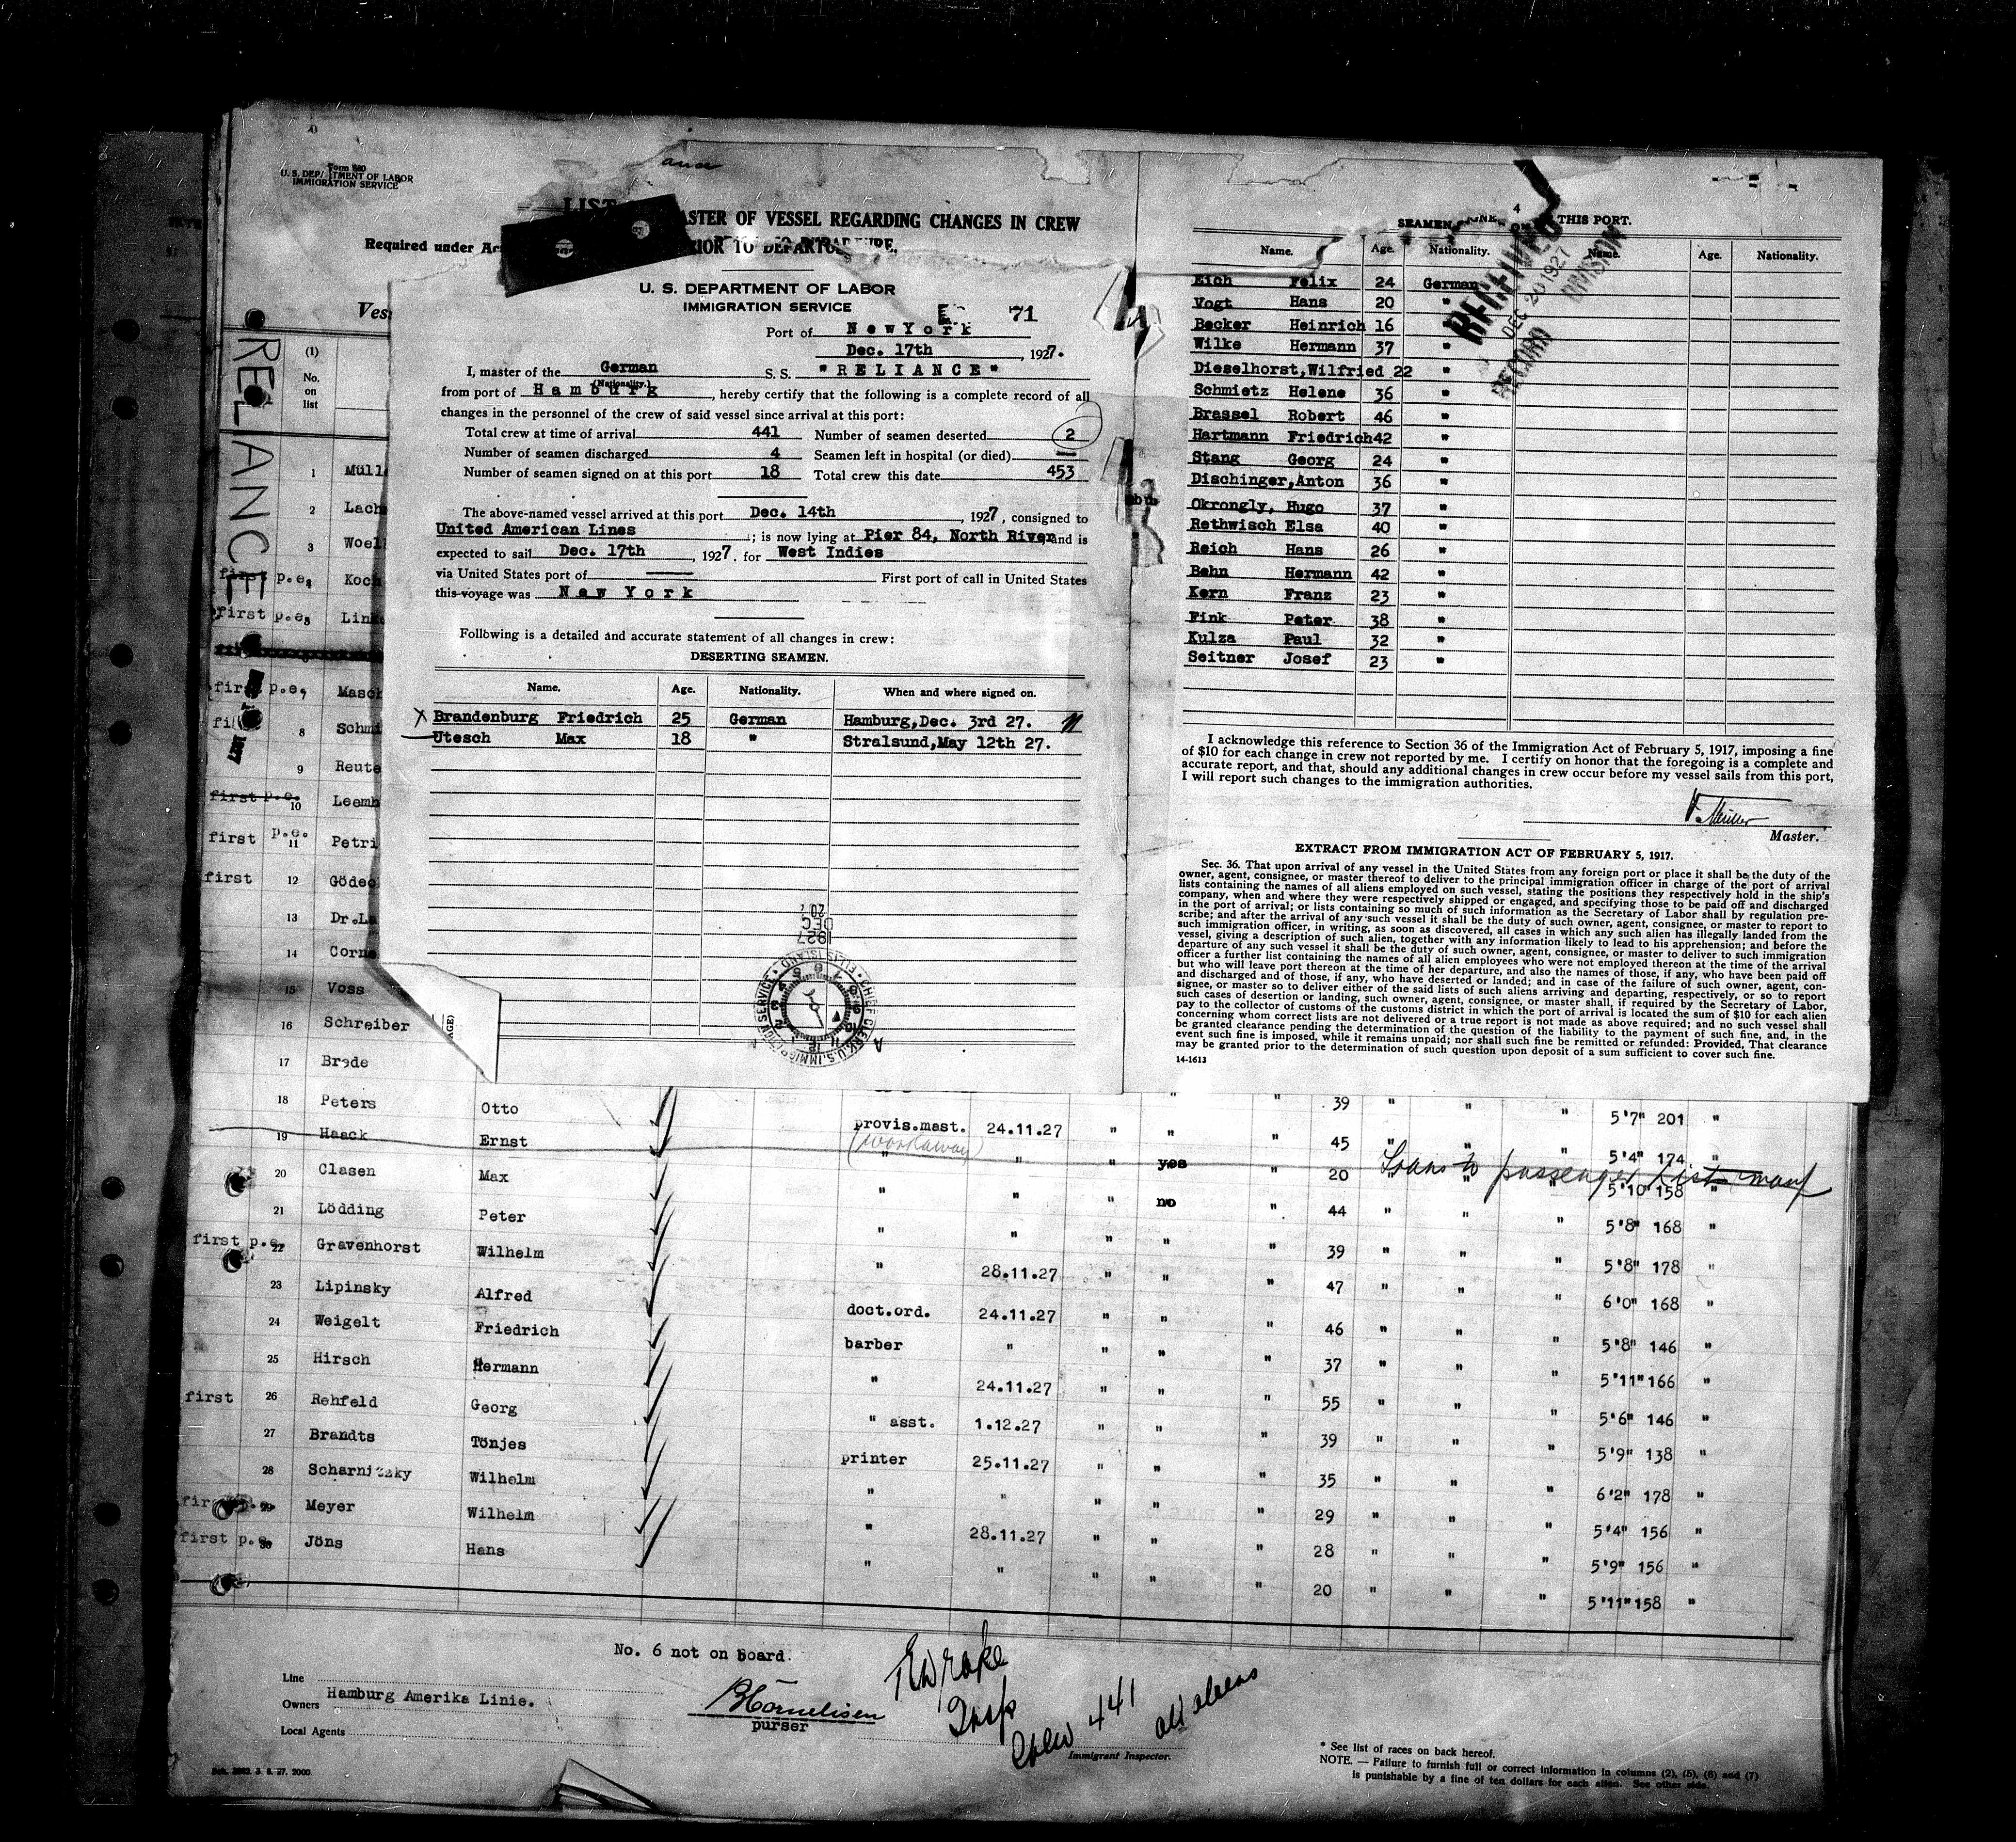 Form 680
U. S. DEP TMENT OF LABOR
IMMIGRATION SERVICE
LIST ASTER OF VESSEL REGARDING CHANGES IN CREW
Required under Ac RIOR TO DEPARTURE.
Vess
RELIANCE
(1)
No.
on
list
1 Müll
2 Lach
3 Woel
first p.e. Koc
first p.e. Link
first p.e. 7 Masc
8 Schmi
9 Reute
first p.e. 10 Leemh
first p.e. 11 Petri
first 12 Gödec
13 Dr.La
14 Corne
15 Voss
16 Schreiber
17 Brede
U. S. DEPARTMENT OF LABOR
IMMIGRATION SERVICE
71
Port of NewYork
Dec. 17th, 1927.
I, master of the German S. S. "RELIANCE"
(Nationality.)
from port of Hamburg, hereby certify that the following is a complete record of all
changes in the personnel of the crew of said vessel since arrival at this port:
Total crew at time of arrival 441 Number of seamen deserted 2
Number of seamen discharged 4 Seamen left in hospital (or died) —
Number of seamen signed on at this port 18 Total crew this date 453
The above-named vessel arrived at this port Dec. 14th, 1927, consigned to
United American Lines; is now lying at Pier 84, North River and is
expected to sail Dec. 17th, 1927. for West Indies
via United States port of — First port of call in United States
this voyage was New York
Following is a detailed and accurate statement of all changes in crew:
DESERTING SEAMEN.
Name. Age. Nationality. When and where signed on.
X Brandenburg Friedrich 25 German Hamburg,Dec. 3rd 27.
Utesch Max 18 " Stralsund,May 12th 27.
1927
DEC
20
CHIEF CLERK, U.S. IMMIGRATION SERVICE ELLIS ISLAND
4
SEAMEN THIS PORT.
Name. Age. Nationality. Name. Age. Nationality.
RECEIVED
DEC 20 1927
RECORD DIVISION
Eich Felix 24 German
Vogt Hans 20 "
Becker Heinrich 16 "
Wilke Hermann 37 "
Dieselhorst,Wilfried 22 "
Schmietz Helene 36 "
Brassel Robert 46 "
Hartmann Friedrich 42 "
Stang Georg 24 "
Dischinger,Anton 36 "
Okrongly, Hugo 37 "
Rethwisch Elsa 40 "
Reich Hans 26 "
Behn Hermann 42 "
Kern Franz 23 "
Fink Peter 38 "
Kulza Paul 32 "
Seitner Josef 23 "
I acknowledge this reference to Section 36 of the Immigration Act of February 5, 1917, imposing a fine
of $10 for each change in crew not reported by me. I certify on honor that the foregoing is a complete and
accurate report, and that, should any additional changes in crew occur before my vessel sails from this port,
I will report such changes to the immigration authorities.
Müller
Master.
EXTRACT FROM IMMIGRATION ACT OF FEBRUARY 5, 1917.
Sec. 36. That upon arrival of any vessel in the United States from any foreign port or place it shall be the duty of the
owner, agent, consignee, or master thereof to deliver to the principal immigration officer in charge of the port of arrival
lists containing the names of all aliens employed on such vessel, stating the positions they respectively hold in the ship's
company, when and where they were respectively shipped or engaged, and specifying those to be paid off and discharged
in the port of arrival; or lists containing so much of such information as the Secretary of Labor shall by regulation pre-
scribe; and after the arrival of any such vessel it shall be the duty of such owner, agent, consignee, or master to report to
such immigration officer, in writing, as soon as discovered, all cases in which any such alien has illegally landed from the
vessel, giving a description of such alien, together with any information likely to lead to his apprehension; and before the
departure of any such vessel it shall be the duty of such owner, agent, consignee, or master to deliver to such immigration
officer a further list containing the names of all alien employees who were not employed thereon at the time of the arrival
but who will leave port thereon at the time of her departure, and also the names of those, if any, who have been paid off
and discharged and of those, if any, who have deserted or landed; and in case of the failure of such owner, agent, con-
signee, or master so to deliver either of the said lists of such aliens arriving and departing, respectively, or so to report
such cases of desertion or landing, such owner, agent, consignee, or master shall, if required by the Secretary of Labor,
pay to the collector of customs of the customs district in which the port of arrival is located the sum of $10 for each alien
concerning whom correct lists are not delivered or a true report is not made as above required; and no such vessel shall
be granted clearance pending the determination of the question of the liability to the payment of such fine, and, in the
event such fine is imposed, while it remains unpaid; nor shall such fine be remitted or refunded: Provided, That clearance
may be granted prior to the determination of such question upon deposit of a sum sufficient to cover such fine.
14-1613
18 Peters Otto provis.mast. 24.11.27 " " " 39 " " " 5'7" 201 "
19 Haack Ernst (workaway) " " " yes " 45 " " " 5'4" 174 "
Trans to passenger list manf
20 Clasen Max " " " no " 20 " " " 5'10" 158 "
21 Lödding Peter " " " " " 44 " " " 5'8" 168 "
first p.e. 22 Gravenhorst Wilhelm " 28.11.27 " " " 39 " " " 5'8" 178 "
23 Lipinsky Alfred doct.ord. 24.11.27 " " " 47 " " " 6'0" 168 "
24 Weigelt Friedrich barber " " " " 46 " " " 5'8" 146 "
25 Hirsch Hermann " 24.11.27 " " " 37 " " " 5'11" 166 "
first 26 Rehfeld Georg " asst. 1.12.27 " " " 55 " " " 5'6" 146 "
27 Brandts Tönjes printer 25.11.27 " " " 39 " " " 5'9" 138 "
28 Scharnitzky Wilhelm " " " " " 35 " " " 6'2" 178 "
first p.e. 29 Meyer Wilhelm " 28.11.27 " " " 29 " " " 5'4" 156 "
first p.e. 30 Jöns Hans " " " " " 28 " " " 5'9" 156 "
20 " " " 5'11" 158 "
No. 6 not on board.
Line
Owners Hamburg Amerika Linie.
Local Agents
BCornelisen
purser
Insp
Crew 441 all aliens
Immigrant Inspector.
* See list of races on back hereof.
NOTE. — Failure to furnish full or correct information in columns (2), (5), (6) and (7)
is punishable by a fine of ten dollars for each alien. See other side.